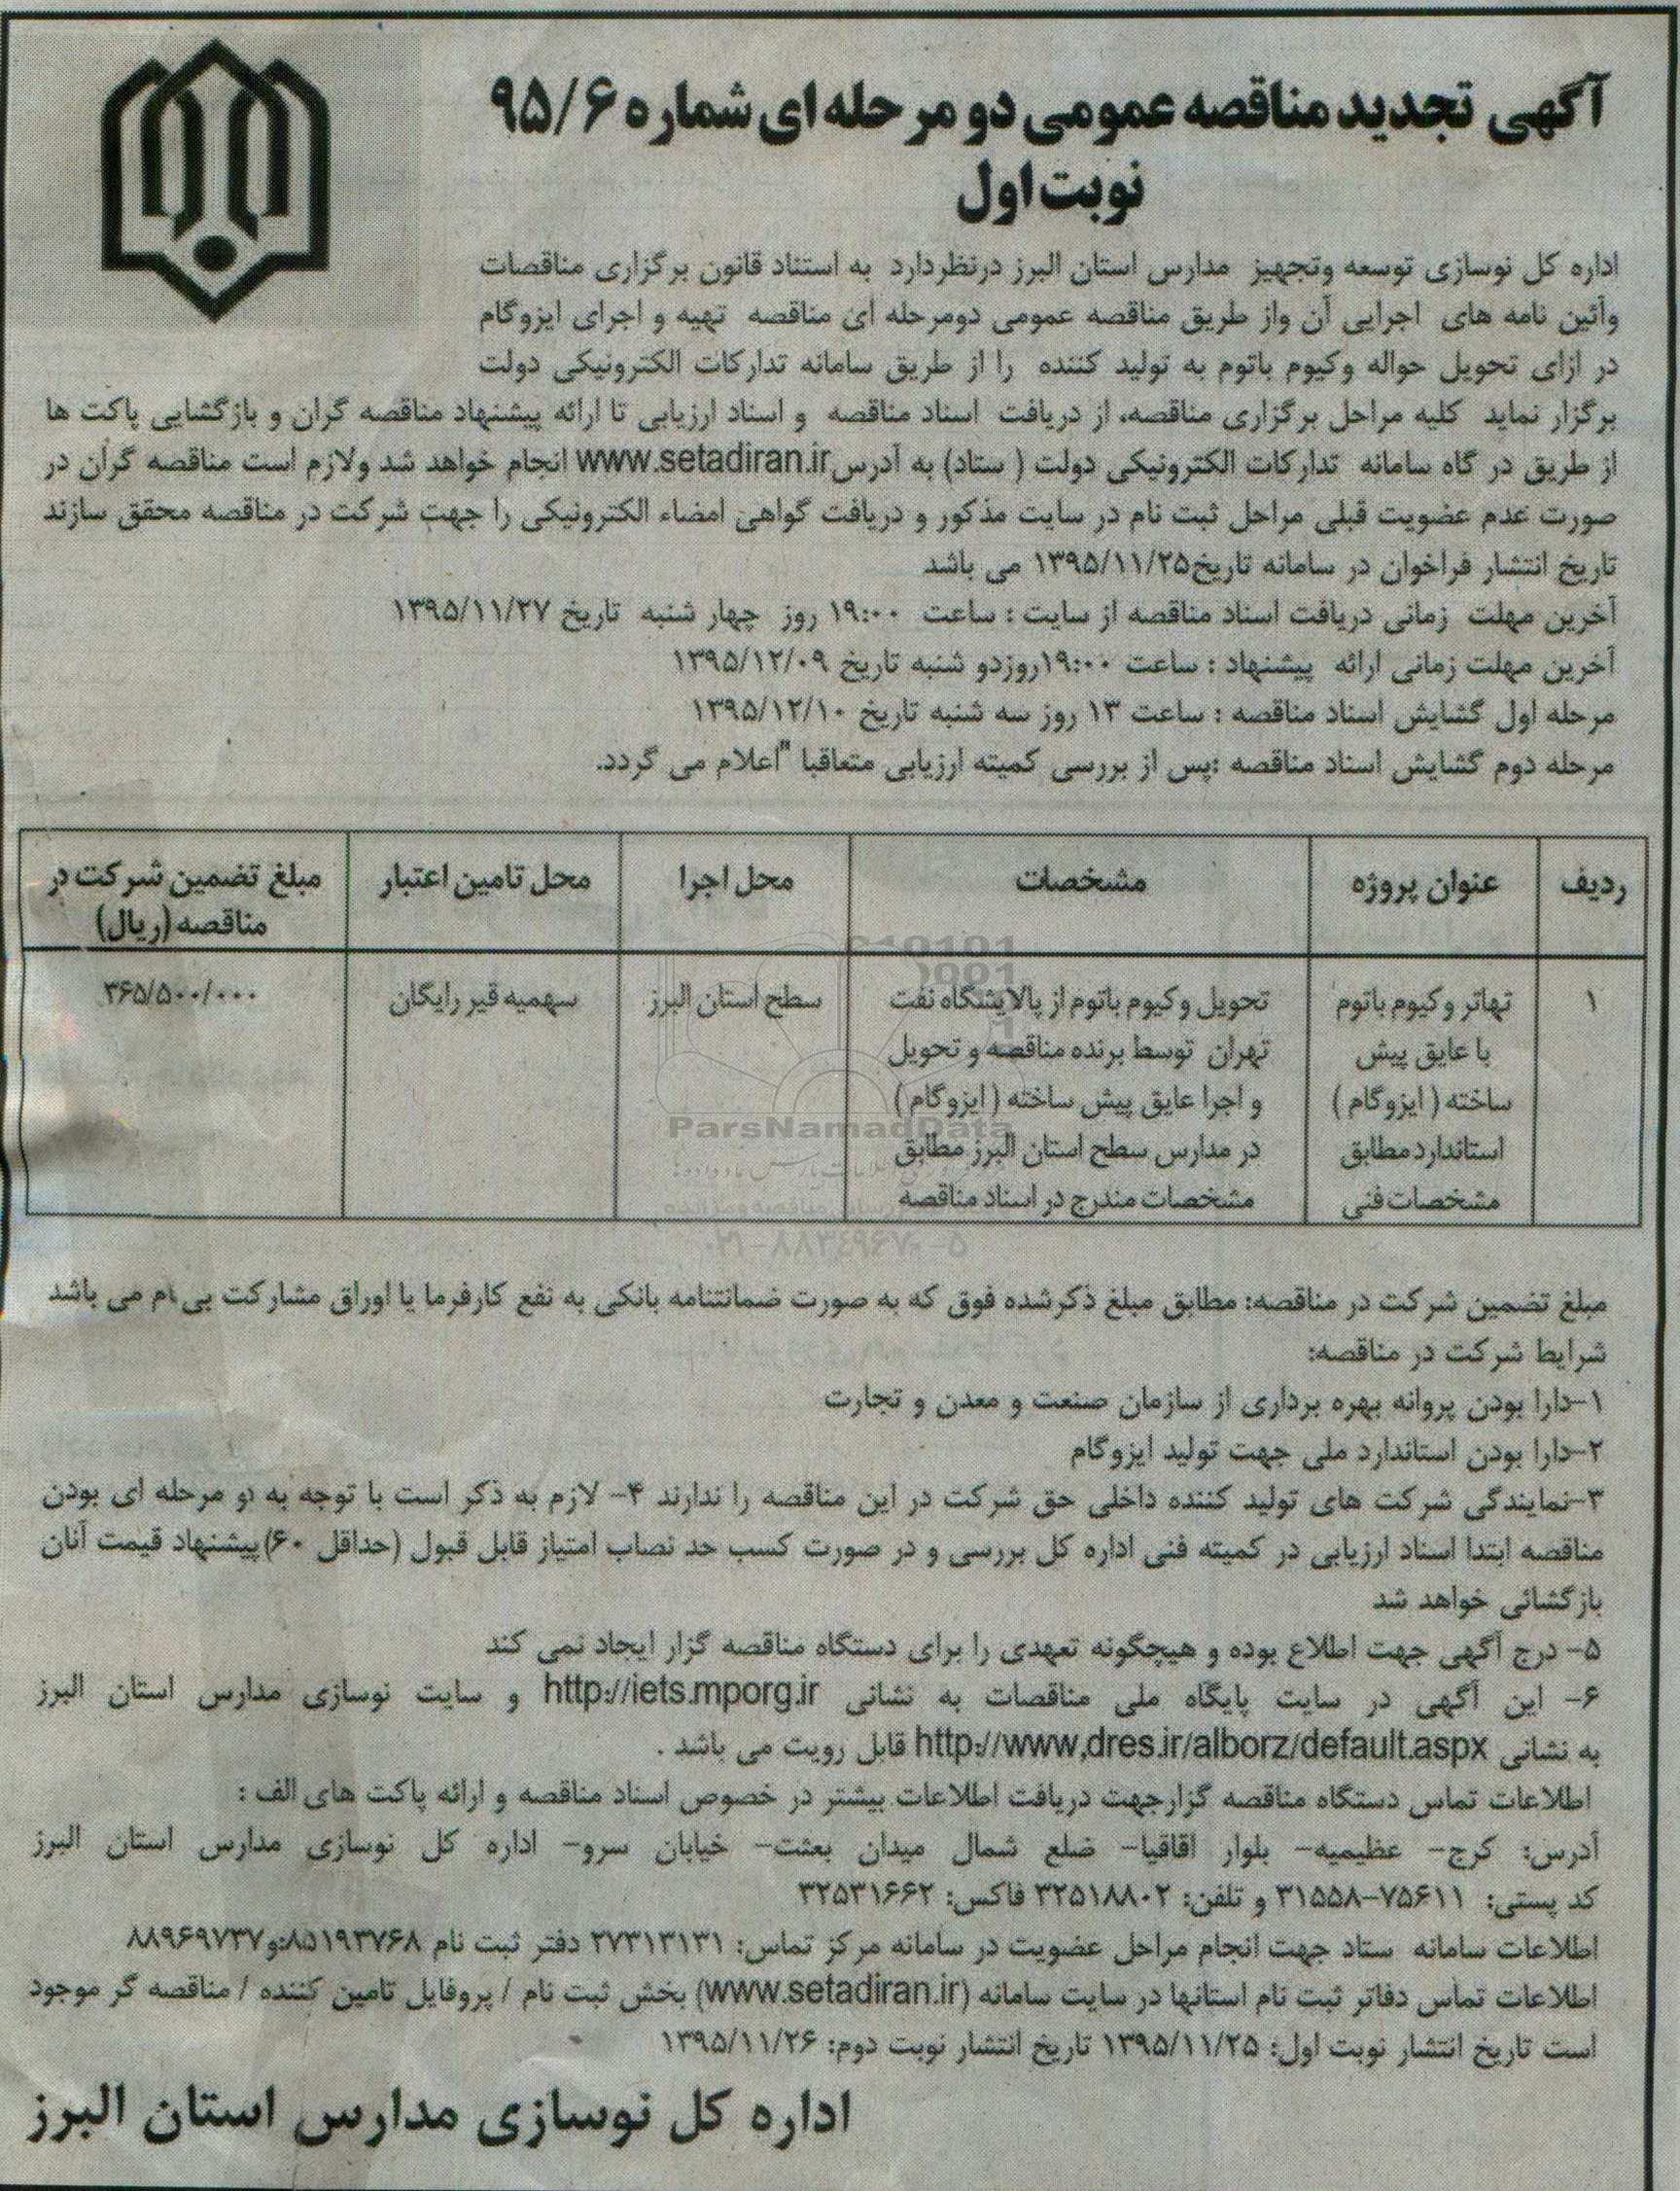 آگهی تجدید مناقصه عمومی دو مرحله ای شماره ۹۵/۶
نوبت اول
اداره کل نوسازی توسعه وتجهیز مدارس استان البرز درنظردارد به استناد قانون برگزاری مناقصات
وآئین نامه های اجرایی آن واز طریق مناقصه عمومی دومرحله ای مناقصه تهیه و اجرای ایزوگام
در ازای تحویل حواله وکیوم باتوم به تولید کننده را از طریق سامانه تدارکات الکترونیکی دولت
برگزار نماید کلیه مراحل برگزاری مناقصه، از دریافت اسناد مناقصه و اسناد ارزیابی تا ارائه پیشنهاد مناقصه گران و بازگشایی پاکت ها
از طریق در گاه سامانه تدارکات الکترونیکی دولت ( ستاد) به آدرس www.setadiran.ir انجام خواهد شد ولازم است مناقصه گران در
صورت عدم عضویت قبلی مراحل ثبت نام در سایت مذکور و دریافت گواهی امضاء الکترونیکی را جهت شرکت در مناقصه محقق سازند
تاریخ انتشار فراخوان در سامانه تاریخ۱۳۹۵/۱۱/۲۵ می باشد
آخرین مهلت زمانی دریافت اسناد مناقصه از سایت : ساعت ۱۹:۰۰ روز چهار شنبه تاریخ ۱۳۹۵/۱۱/۲۷
آخرین مهلت زمانی ارائه پیشنهاد : ساعت ۱۹:۰۰روزدو شنبه تاریخ ۱۳۹۵/۱۲/۰۹
مرحله اول گشایش اسناد مناقصه : ساعت ۱۳ روز سه شنبه تاریخ ۱۳۹۵/۱۲/۱۰
مرحله دوم گشایش اسناد مناقصه :پس از بررسی کمیته ارزیابی متعاقبا "اعلام می گردد.
ردیف عنوان پروژه مشخصات محل اجرا محل تامین اعتبار مبلغ تضمین شرکت در
مناقصه (ریال)
۱ تهاتر وکیوم باتوم تحویل وکیوم باتوم از پالایشگاه نفت سطح استان البرز سهمیه قیر رایگان ۳۶۵/۵۰۰/۰۰۰
با عایق پیش تهران توسط برنده مناقصه و تحویل
ساخته ( ایزوگام ) و اجرا عایق پیش ساخته ( ایزوگام )
استاندارد مطابق در مدارس سطح استان البرز مطابق
مشخصات فنی مشخصات مندرج در اسناد مناقصه
ParsNamadData
۰۲۱-۸۸۳۴۹۶۷۰-۵
مبلغ تضمین شرکت در مناقصه: مطابق مبلغ ذکرشده فوق که به صورت ضمانتنامه بانکی به نفع کارفرما یا اوراق مشارکت بی نام می باشد
شرایط شرکت در مناقصه:
۱-دارا بودن پروانه بهره برداری از سازمان صنعت و معدن و تجارت
۲-دارا بودن استاندارد ملی جهت تولید ایزوگام
۳-نمایندگی شرکت های تولید کننده داخلی حق شرکت در این مناقصه را ندارند ۴- لازم به ذکر است با توجه به دو مرحله ای بودن
مناقصه ابتدا اسناد ارزیابی در کمیته فنی اداره کل بررسی و در صورت کسب حد نصاب امتیاز قابل قبول (حداقل ۶۰)پیشنهاد قیمت آنان
بازگشائی خواهد شد
۵- درج آگهی جهت اطلاع بوده و هیچگونه تعهدی را برای دستگاه مناقصه گزار ایجاد نمی کند
۶- این آگهی در سایت پایگاه ملی مناقصات به نشانی http://iets.mporg.ir و سایت نوسازی مدارس استان البرز
به نشانی http://www,dres.ir/alborz/default.aspx قابل رویت می باشد .
اطلاعات تماس دستگاه مناقصه گزارجهت دریافت اطلاعات بیشتر در خصوص اسناد مناقصه و ارائه پاکت های الف :
آدرس: کرج- عظیمیه- بلوار اقاقیا- ضلع شمال میدان بعثت- خیابان سرو- اداره کل نوسازی مدارس استان البرز
کد پستی: ۷۵۶۱۱-۳۱۵۵۸ و تلفن: ۳۲۵۱۸۸۰۲ فاکس: ۳۲۵۳۱۶۶۲
اطلاعات سامانه ستاد جهت انجام مراحل عضویت در سامانه مرکز تماس: ۲۷۳۱۳۱۳۱ دفتر ثبت نام ۸۵۱۹۳۷۶۸ و۸۸۹۶۹۷۳۷
اطلاعات تماس دفاتر ثبت نام استانها در سایت سامانه (www.setadiran.ir) بخش ثبت نام / پروفایل تامین کننده / مناقصه گر موجود
است تاریخ انتشار نوبت اول: ۱۳۹۵/۱۱/۲۵ تاریخ انتشار نوبت دوم: ۱۳۹۵/۱۱/۲۶
اداره کل نوسازی مدارس استان البرز